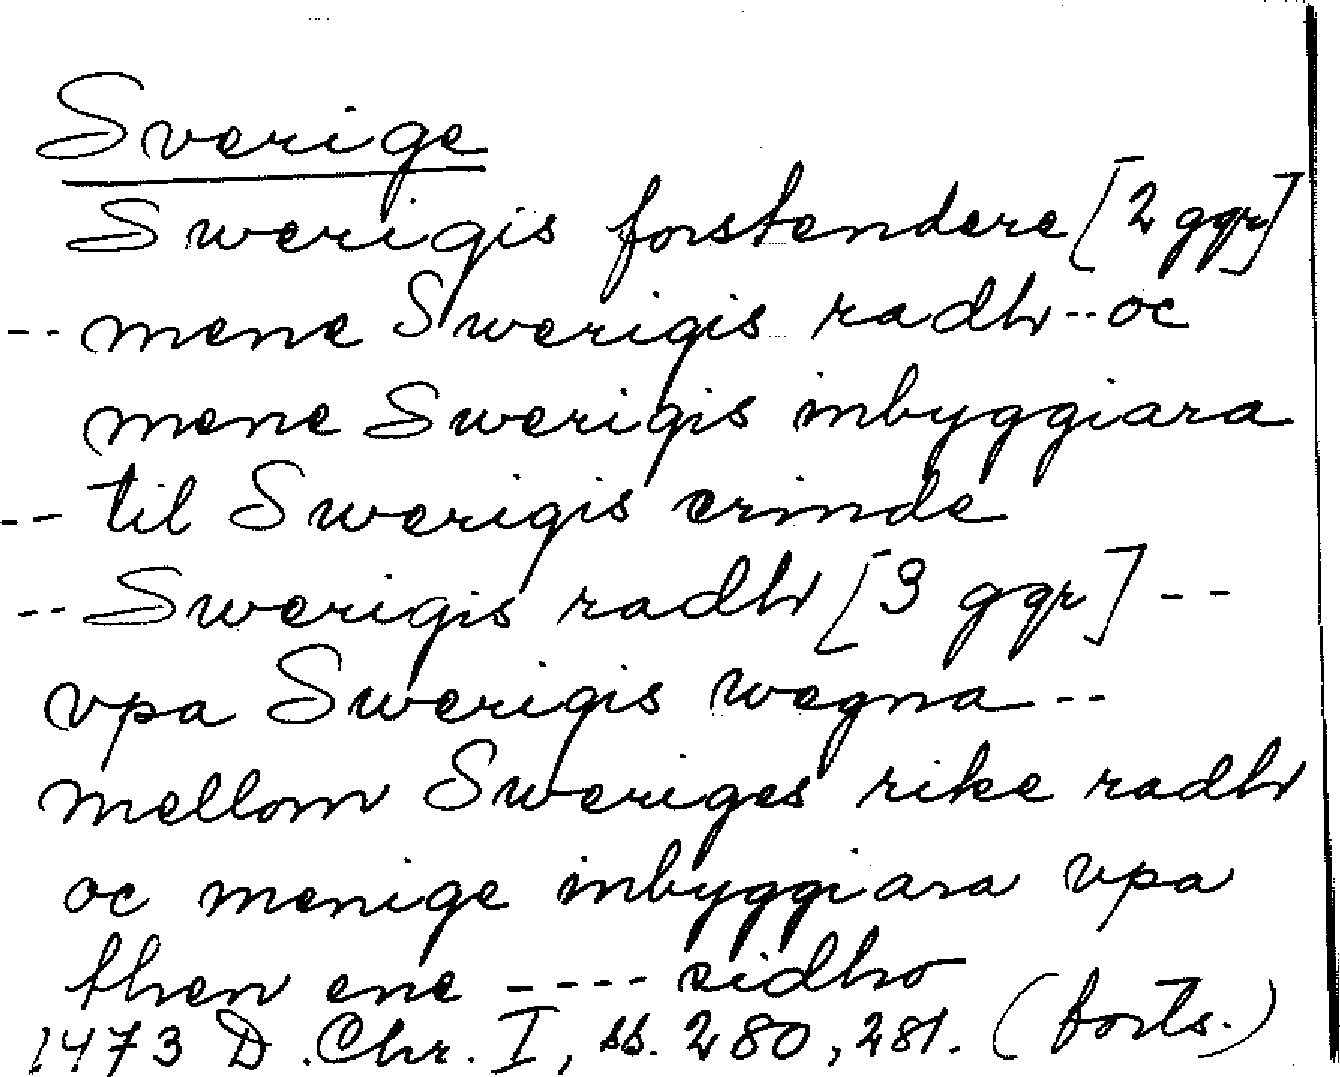 Sverige
Swerigis forstendere [2 ggr]
-- mene Swerigis radh -- oc
mene Swerigis inbyggiara
-- til Swerigis erinde
-- Swerigis radh [3 ggr] --
vpa Swerigis wegna --
mellom Sweriges rike radh
oc menige inbyggiara vpa
then ene ---- sidho
1473 D. Chr. I, ss. 280, 281. (forts.)